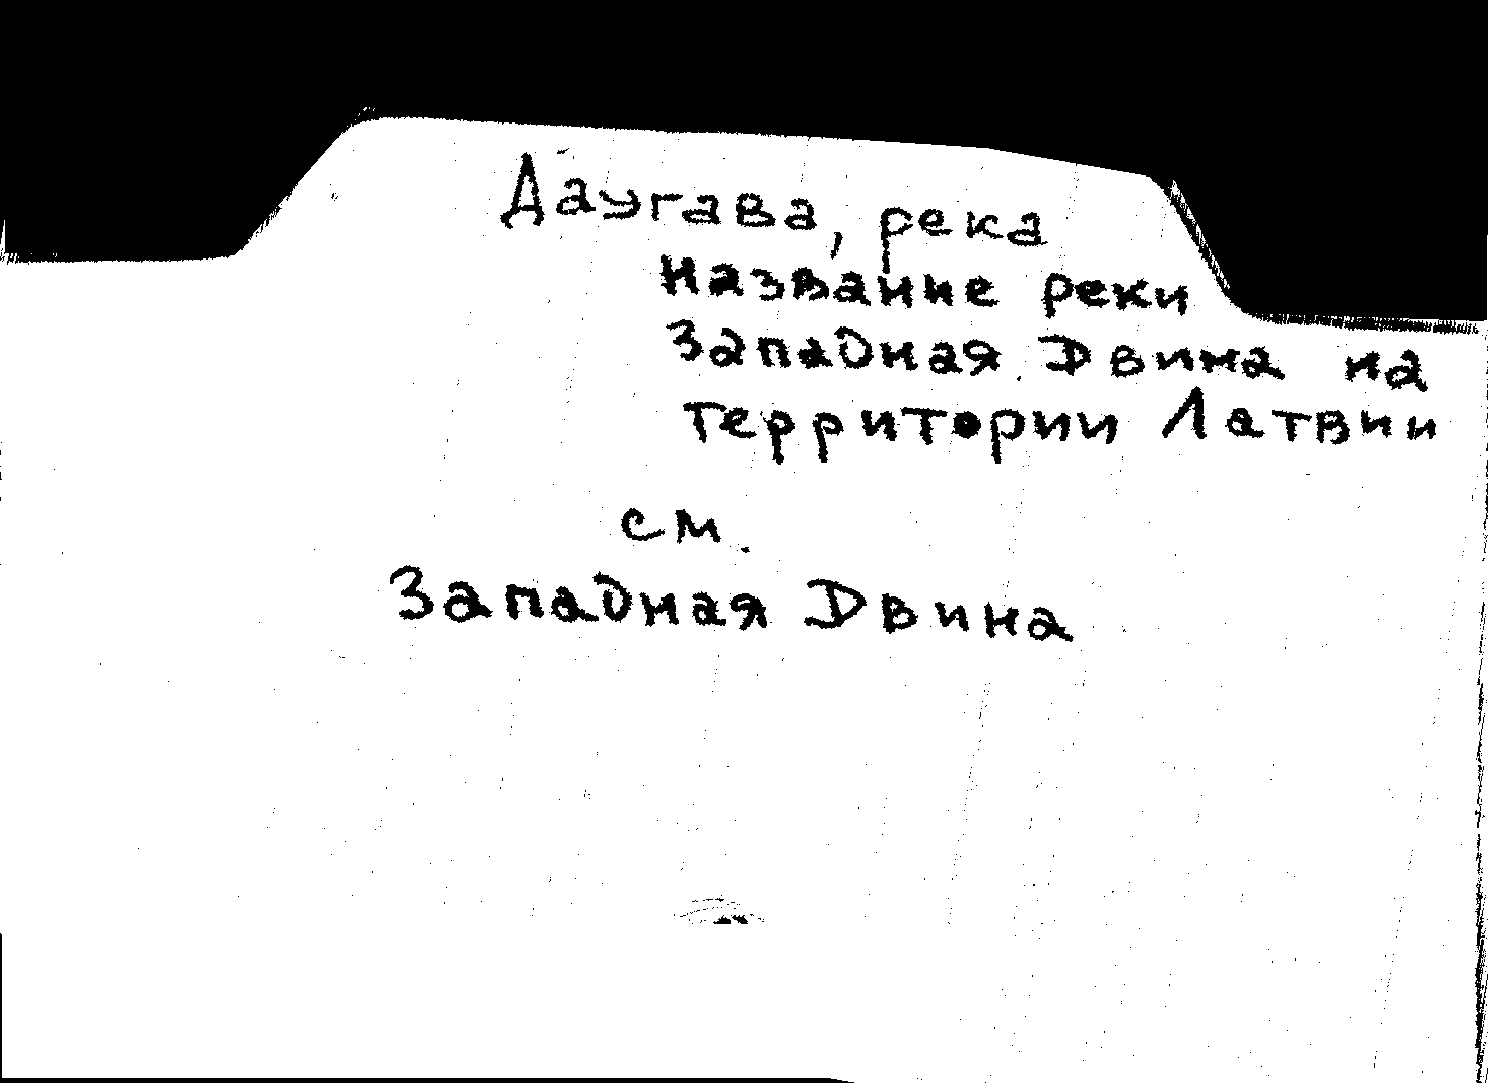 Даугава, река
название реки
Западная Двина на
территории Латвии
см.
Западная Двина